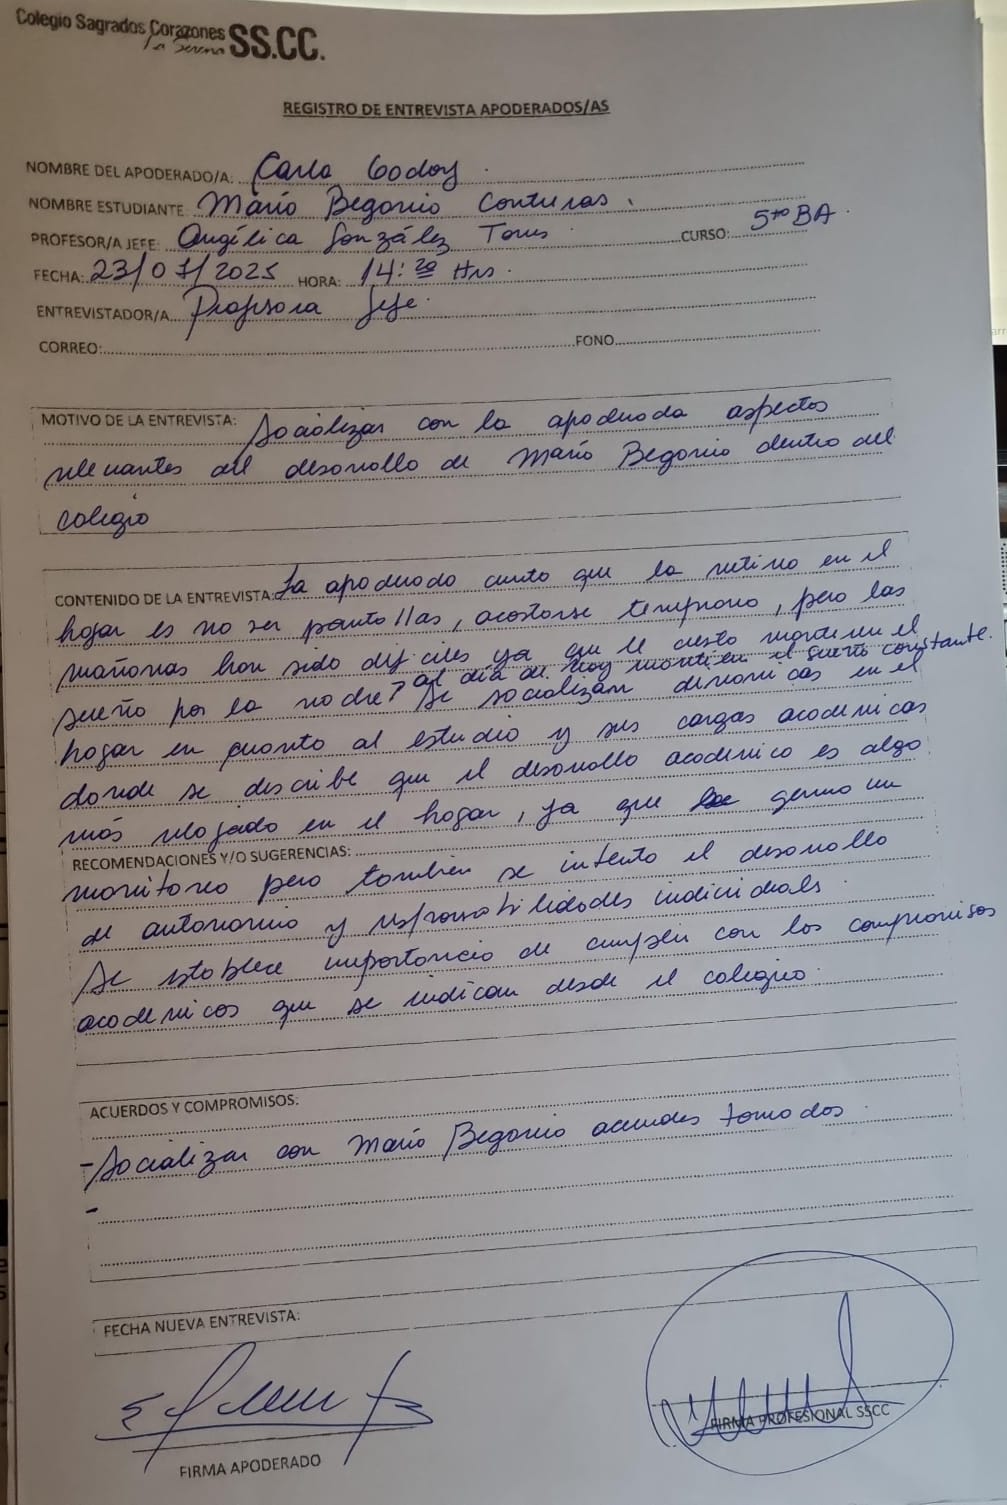 Colegio Sagrados Corazones
La Serena SS.CC.
REGISTRO DE ENTREVISTA APODERADOS/AS
NOMBRE DEL APODERADO/A: Carla Godoy
NOMBRE ESTUDIANTE Mario Begorio Contreras
PROFESOR/A JEFE: Angélica González Torres CURSO: 5to BA
FECHA: 23/07/2025 HORA: 14:20 Hrs.
ENTREVISTADOR/A Profesora Jefe.
CORREO: FONO
MOTIVO DE LA ENTREVISTA: Socializar con la apoderada aspectos
relevantes del desarrollo de Mario Begorio dentro del
colegio
CONTENIDO DE LA ENTREVISTA: La apoderada cuenta que la rutina en el
hogar es no ver pantallas, acostarse temprano, pero las
mañanas han sido dificiles ya que le cuesta mantener el
al día de hoy mantiene el sueño constante.
sueño por la noche, Se socializan dinamicas en el
hogar en cuanto al estudio y sus cargas academicas
donde se describe que el desarrollo academico es algo
más relajado en el hogar, ya que se genera un
RECOMENDACIONES Y/O SUGERENCIAS:
monitoreo pero tambien se intenta el desarrollo
de autonomia y responsabilidades individuales.
Se establece importancia de cumplir con los compromisos
academicos que se indican desde el colegio.
ACUERDOS Y COMPROMISOS:
- Socializar con Mario Begorio acuerdos tomados.
-
FECHA NUEVA ENTREVISTA:
FIRMA APODERADO
FIRMA PROFESIONAL SSCC